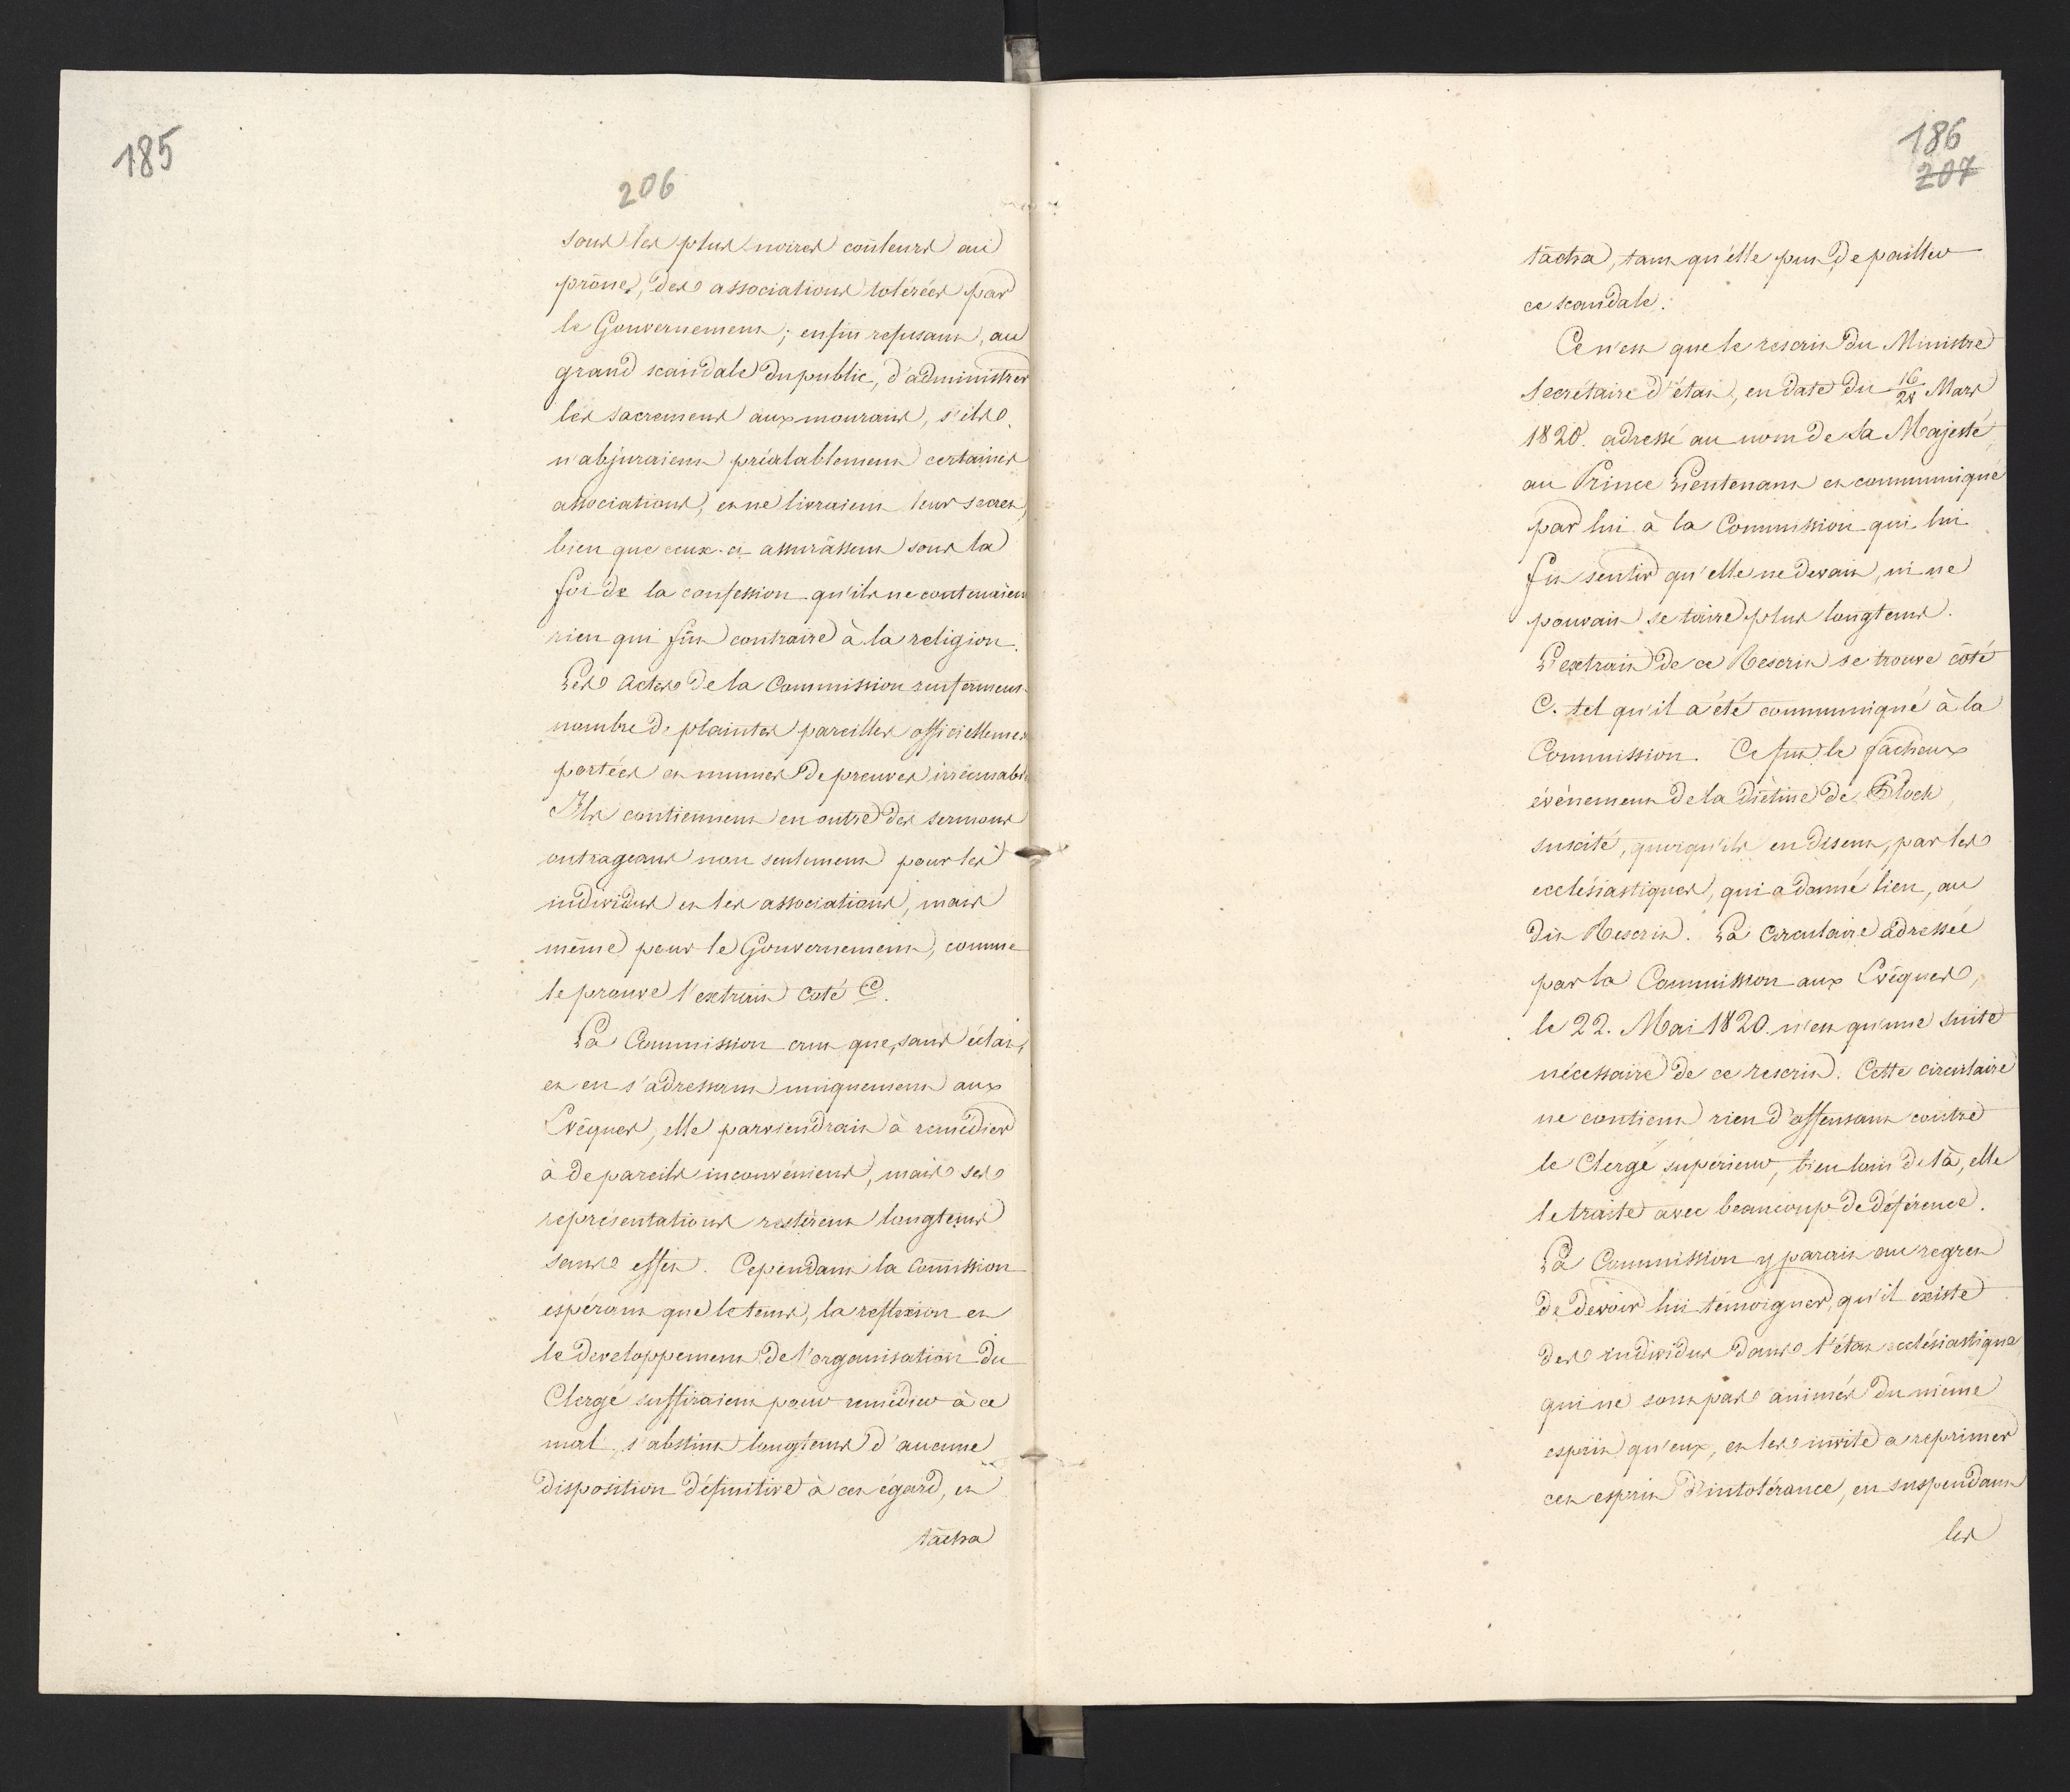 185
206
sous les plus noires couleurs au
prône, des associations tolérées par
le Gouvernement; enfin refusant, au
grand scandale du public, d'administrer
les sacremens aux mourans, s'ils
n'abjuraient préalablement certaines
associations, et ne livraient leur secret,
bien que ceux-ci assurâssent sous la
foi de la confession qu'ils ne contenaient
rien qui fût contraire à la religion.
Les Actes de la Commission renferment
nombre de plaintes pareilles officiellement
portées et munies de preuves irrécusables
Ils contiennent en outre des sermons
outrageans non seulement pour les
individus et les associations, mais
même pour le Gouvernement, comme
le prouve l'extrait coté C.
La Commission crut que, sans éclat,
et en s'adressant uniquement aux
Evêques, elle parviendrait à remédier
à de pareils inconvéniens, mais ses
représentations restèrent longtems
sans effet. Cependant la Com̄ission
espérant que le tems, la reflexion et
le developpement de l'organisation du
Clergé suffiraient pour remédier à ce
mal, s'abstint longtems d'aucune
disposition définitive à cet égard, et
tâcha
186
207
tâcha, tant qu'elle put, de pallier
ce scandale.
Ce n'est que le rescrit du Ministre
Secrétaire d'état, en date du 16/28 Mars
1820. adressé au nom de Sa Majesté
au Prince Lieutenant et communiqué
par lui à la Commission qui lui
fit sentir qu'elle ne devait, ni ne
pouvait se taire plus longtems.
L'extrait de ce Rescrit se trouve côté
C. tel qu'il a été communiqué à la
Commission. Ce fut le fâcheux
événement de la diétine de Plock,
suscité, quoiqu'ils en disent, par les
ecclésiastiques, qui a donné lieu, au
dit Rescrit. La Circulaire adressée
par la Commission aux Evêques,
le 22. Mai 1820. n'est qu'une suite
nécessaire de ce rescrit. Cette circulaire
ne contient rien d'offensant contre
le Clergé supérieur, bien loin de là, elle
le traite avec beaucoup de déférence.
La Commission y parait au regret
de devoir lui témoigner, qu'il existe
des individus dans l'état ecclésiastique
qui ne sont pas animés du même
esprit qu'eux, et les invite a reprimer
cet esprit d'intolérance, en suspendant
les